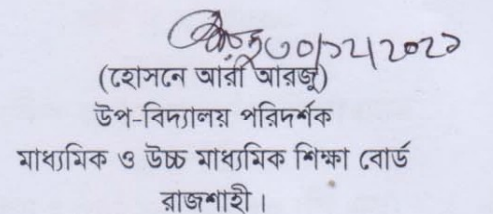 ৩০/১২/২০২১
(হোসনে আরা আরজু)
উপ-বিদ্যালয় পরিদর্শক
মাধ্যমিক ও উচ্চ মাধ্যমিক শিক্ষা বোর্ড
রাজশাহী।